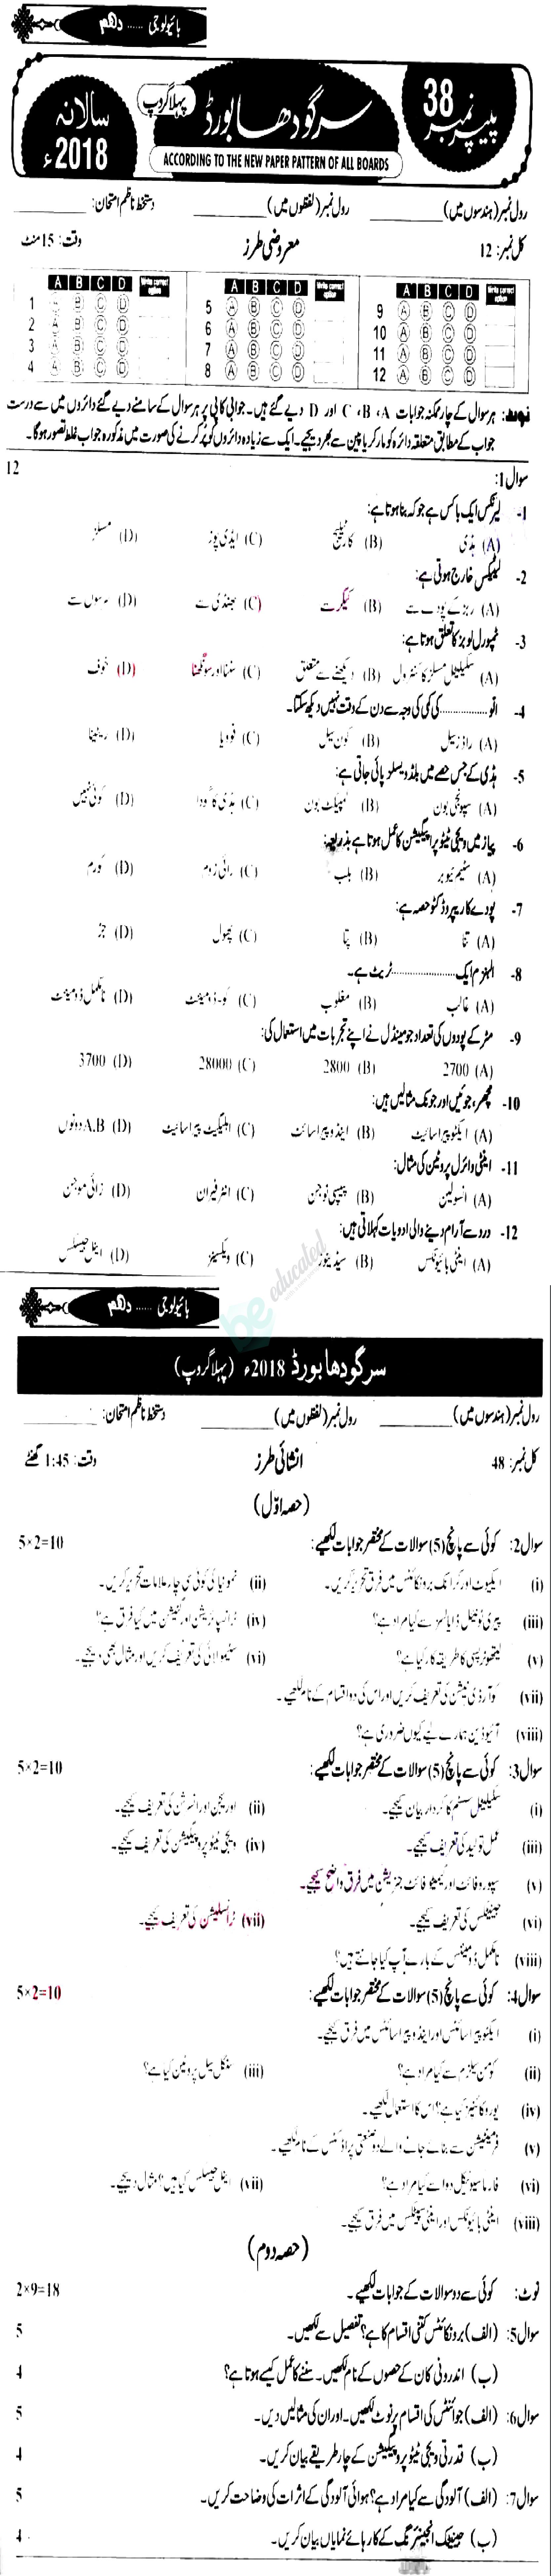 بائیولوجی ...... دھم
پیپر نمبر 38
سرگودھا بورڈ
پہلا گروپ
سالانہ 2018ء
ACCORDING TO THE NEW PAPER PATTERN OF ALL BOARDS
رول نمبر (ہندسوں میں) ____________ رول نمبر (لفظوں میں) ____________ دستخط ناظم امتحان: ____________
کل نمبر: 12 معروضی طرز وقت: 15 منٹ
A B C D Write correct option A B C D Write correct option A B C D Write correct option
1 A B C D 5 A B C D 9 A B C D
2 A B C D 6 A B C D 10 A B C D
3 A B C D 7 A B C D 11 A B C D
4 A B C D 8 A B C D 12 A B C D
نوٹ: ہر سوال کے چار ممکنہ جوابات A، B، C اور D دیے گئے ہیں۔ جوابی کاپی پر ہر سوال کے سامنے دیے گئے دائروں میں سے درست
جواب کے مطابق متعلقہ دائرہ کو مارکر یا پین سے بھر دیجیے۔ ایک سے زیادہ دائروں کو پُر کرنے کی صورت میں مذکورہ جواب غلط تصور ہوگا۔
سوال 1: 12
1- لیرنکس ایک باکس ہے جو کہ بنا ہوتا ہے:
(A) ہڈی (B) کارٹلیج (C) ایڈی پوز (D) مسلز
2- لیٹیکس خارج ہوتی ہے:
(A) ربڑ کے پودے سے (B) کیکر سے (C) بھنڈی سے (D) سرسوں سے
3- ٹمپورل لوبز کا تعلق ہوتا ہے:
(A) سکیلیٹل مسلز کا کنٹرول (B) دیکھنے سے متعلق (C) سننا اور سونگھنا (D) خوف
4- الو ................ کی کمی کی وجہ سے دن کے وقت نہیں دیکھ سکتا۔
(A) راڈ سیل (B) کون سیل (C) فوویا (D) ریٹینا
5- ہڈی کے جس حصے میں بلڈ ویسلز پائی جاتی ہے:
(A) سپونجی بون (B) کمپیکٹ بون (C) ہڈی کا گودا (D) کوئی نہیں
6- پیاز میں ویجی ٹیٹو پراپیگیشن کا عمل ہوتا ہے بذریعہ:
(A) سٹیم ٹیوبر (B) بلب (C) رائی زوم (D) کورم
7- پودے کا ریپروڈکٹو حصہ ہے:
(A) تنا (B) پتا (C) پھول (D) جڑ
8- البنزم ایک ..................... ٹریٹ ہے۔
(A) غالب (B) مغلوب (C) کو۔ڈومیننٹ (D) نامکمل ڈومیننٹ
9- مٹر کے پودوں کی تعداد جو مینڈل نے اپنے تجربات میں استعمال کی:
(A) 2700 (B) 2800 (C) 28000 (D) 3700
10- مچھر، جوئیں اور جونک مثالیں ہیں:
(A) ایکٹو پیراسائیٹ (B) اینڈو پیراسائٹ (C) ابلیگیٹ پیراسائیٹ (D) A،B دونوں
11- اینٹی وائرل پروٹین کی مثال:
(A) انسولین (B) پیپسی نوجن (C) انٹرفیران (D) زائی موجن
12- درد سے آرام دینے والی ادویات کہلاتی ہیں:
(A) اینٹی بائیوٹکس (B) سیڈیٹوز (C) ویکسینز (D) اینل جیسکس
be educated
بائیولوجی ...... دھم
سرگودھا بورڈ 2018ء (پہلا گروپ)
رول نمبر (ہندسوں میں) ____________ رول نمبر (لفظوں میں) ____________ دستخط ناظم امتحان: ____________
کل نمبر: 48 انشائی طرز وقت: 1:45 گھنٹے
(حصہ اوّل)
سوال 2: کوئی سے پانچ (5) سوالات کے مختصر جوابات لکھیے: 5×2=10
(i) ایکیوٹ اور کرانک برونکائٹس میں فرق تحریر کریں۔ (ii) نمونیا کی کوئی سی چار علامات تحریر کریں۔
(iii) پیری ٹونیل ڈایالسز سے کیا مراد ہے؟ (iv) ٹرانسپائریشن اور گٹیشن میں کیا فرق ہے؟
(v) لیتھوٹرپسی کا طریقہ کار کیا ہے؟ (vi) سٹیمولائی کی تعریف کریں اور مثال بھی دیجیے۔
(vii) کوآرڈی نیشن کی تعریف کریں اور اس کی دو اقسام کے نام لکھیے۔
(viii) آئیوڈین ہمارے لیے کیوں ضروری ہے؟
سوال 3: کوئی سے پانچ (5) سوالات کے مختصر جوابات لکھیے: 5×2=10
(i) سکیلیٹل سسٹم کا کردار بیان کیجیے۔ (ii) اوریجن اور انسرشن کی تعریف کیجیے۔
(iii) عمل تولید کی تعریف کیجیے۔ (iv) ویجی ٹیٹو پروپیگیشن کی تعریف کیجیے۔
(v) سپوروفائٹ اور گیمیٹوفائٹ جنریشن میں فرق واضح کیجیے۔
(vi) جینیٹکس کی تعریف کیجیے۔ (vii) ٹرانسلیشن کی تعریف کیجیے۔
(viii) نامکمل ڈومیننس کے بارے آپ کیا جانتے ہیں؟
سوال 4: کوئی سے پانچ (5) سوالات کے مختصر جوابات لکھیے: 5×2=10
(i) ایکٹو پیراسائٹس اور اینڈو پیراسائٹس میں فرق کیجیے۔
(ii) کومن سیلزم سے کیا مراد ہے؟ (iii) سنگل سیل پروٹین کیا ہے؟
(iv) یوروکائنیز کیا ہے؟ اس کا استعمال لکھیے۔
(v) فرمنٹیشن سے بنائے جانے والے دو صنعتی پراڈکٹس کے نام لکھیے۔
(vi) فارماسیوٹیکل دوا سے کیا مراد ہے؟ (vii) اینل جیسکس کیا ہیں؟ مثال دیجیے۔
(viii) اینٹی بائیوٹکس اور اینٹی سیپٹکس میں فرق کیجیے۔
(حصہ دوم)
نوٹ: کوئی سے دو سوالات کے جوابات لکھیے۔ 2×9=18
سوال 5: (الف) برونکائٹس کتنی اقسام کا ہے؟ تفصیل سے لکھیں۔ 5
(ب) اندرونی کان کے حصوں کے نام لکھیں۔ سننے کا عمل کیسے ہوتا ہے؟ 4
سوال 6: (الف) جوائنٹس کی اقسام پر نوٹ لکھیں۔ اور ان کی مثالیں دیں۔ 5
(ب) قدرتی ویجی ٹیٹو پروپیگیشن کے چار طریقے بیان کریں۔ 4
سوال 7: (الف) آلودگی سے کیا مراد ہے؟ ہوائی آلودگی کے اثرات کی وضاحت کریں۔ 5
(ب) جینیٹک انجینئرنگ کے کارہائے نمایاں بیان کریں۔ 4